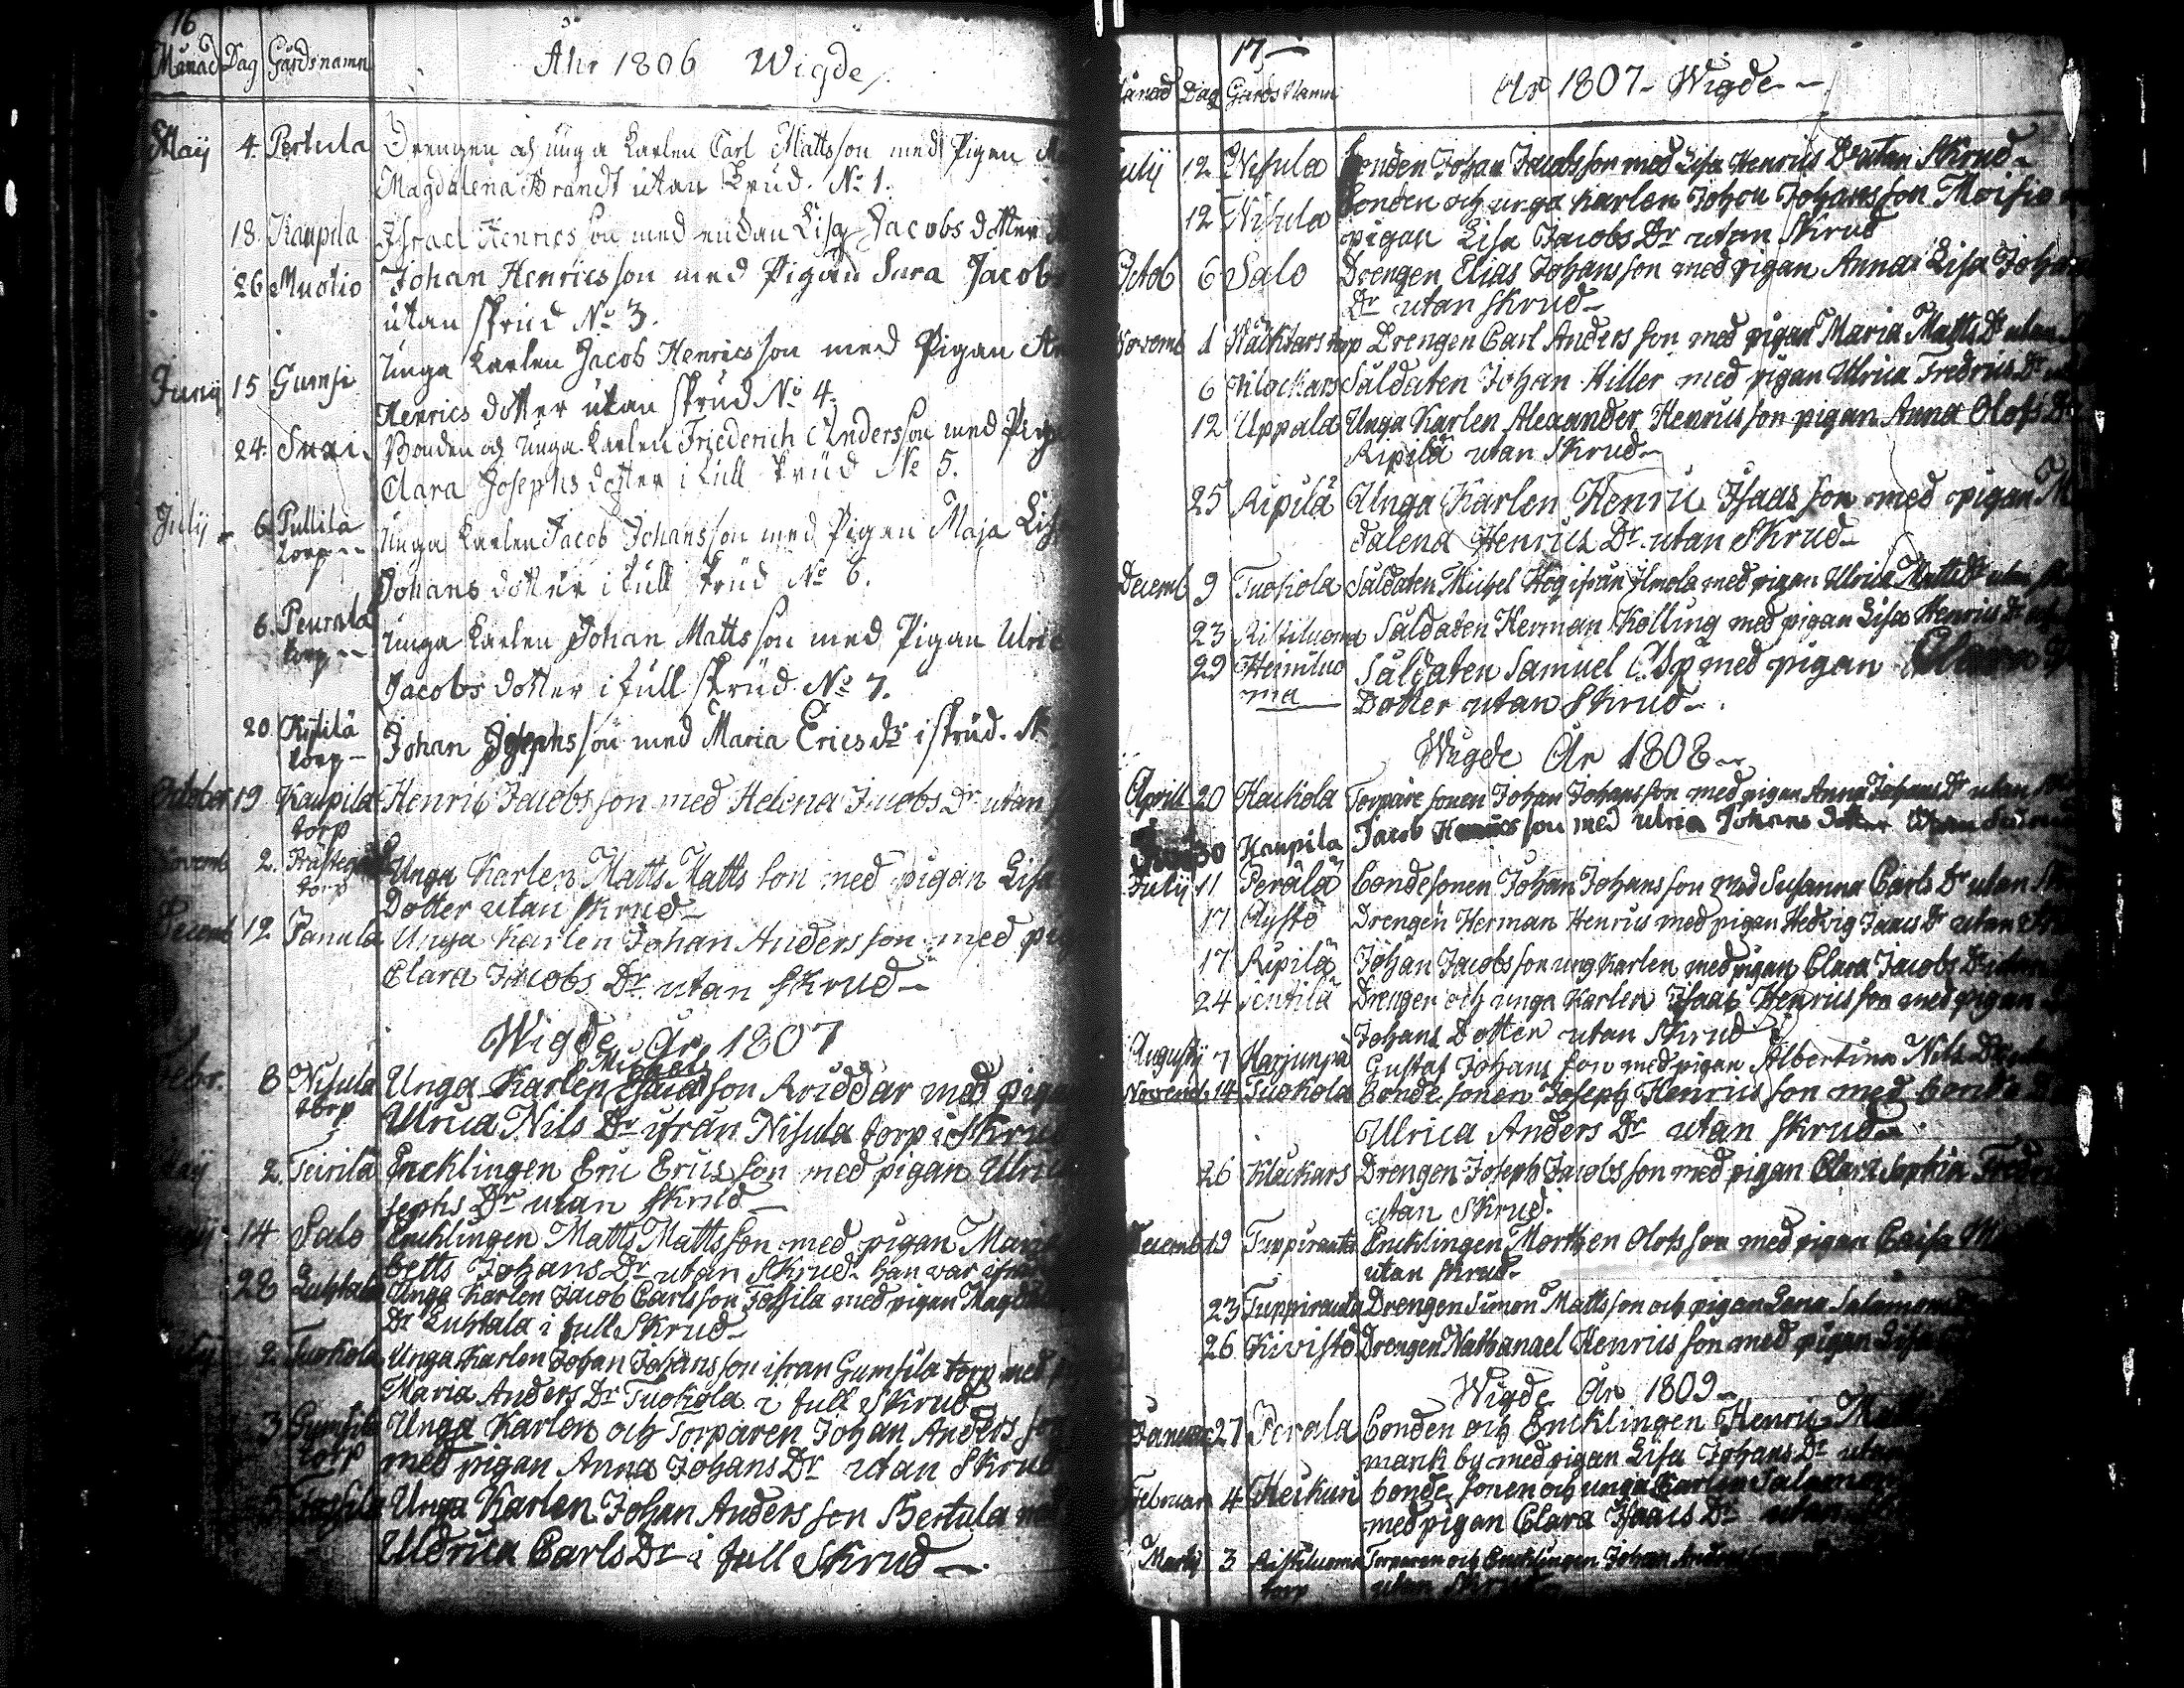 16
Månad Dag Gårdsnamn Åhr 1806 Wigde
Maij 4. Pertula Drengen och unga Karlen Carl Mattsson med Pigan
Magdalena Brandt utan Skrud. No 1.
18. Kaupila Israel Henricsson med enckan Lisa Jacobs dotter
26 Muotio Johan Henricsson med Pigan Sara Jacobs
utan skrud No 3.
Junij 15 Gumsi Unga Karlen Jacob Henricsson med Pigan
Henrics dotter utan skrud No 4.
24. Bonden och Unga Karlen Friederich Andersson med
Clara Josephs dotter i full skrud No 5.
Julij 6. Pullila Unga Karlen Jacob Johansson med Pigan Maja Lisa
torp
Johans dotter i full skrud No 6.
6. Peurala Unga Karlen Johan Mattsson med Pigan Ulric
torp
Jacobs dotter i full skrud No 7.
20 Kytilä Johan Josephsson med Maria Erics dr i skrud.
torp
October 19 Kaupila Henric Jacobsson med Helena Jacobs Dr utan
torp
Novemb 2. Unga Karlen Matts Matts son med pigan Lisa
torp
Dotter utan Skrud
Decemb 12 Panula Unga Karlen Johan Andersson med
Clara Jacobs Dr utan Skrud
Wigde År 1807
Michel
Febr. 8 Nisula Unga Karlen son Roiddar med pigan
torp Ulrica Nils Dr ifrån Nisula torp i Skrud
2 Teirila Encklingen Eric Ericsson med pigan Ulric
sephs Dr utan Skrud
14 Salo Encklingen Matts Mattsson med pigan Maria
betts Johans Dr utan Skrud. han war ifrån
28 Luhtala Unga Karlen Jacob Carlsson Jossila med pigan Magda
Dr Luhtala i full Skrud
2 Tuokola Unga Karlen Johan Johansson ifran Gumsila torp med
Maria Anders Dr Tuokola i full Skrud
3 Gumsila Unga Karlen och Torparen Johan Anders son
torp med pigan Anna Johans Dr utan Skrud
Unga Karlen Johan Anders son Bertula
Uldrica Carls Dr i full Skrud
17
Månad Dag Gårds Namn År 1807 Wigde
Julij 12 Nisula bonden Johan Jacobsson med Lisa Henrics Dr utan Skrud
12 Nisula bonden och unga Karlen Johan Johansson Moisio
pigan Lisa Jacobs Dr utan Skrud
Octob 6 Salo Drengen Elias Johansson med pigan Anna Lisa Johan
Dr utan skrud
Novemb 1 Drengen Carl Anders son med pigan Maria Matts Dr utan
6 Klockars Saldaten Johan Hiller med pigan Ulrica Fredrics Dr
12 Uppala Unga Karlen Alexander Henricsson pigan Anna Olofs Dr
Ripilä utan Skrud
25 Ripilä Unga Karlen Henric Isaas son med pigan
dalena Henrics Dr utan Skrud
Decemb 9 Tuokola Saldaten Michel Hög ifrån Ilmola med pigan Ulrica Matts Dr utan
23 Ristiluoma Saldaten Herman Kolling med pigan Lisa Henrics Dr
29 Heiniluo Saldaten Samuel Asp med pigan
ma Dotter utan Skrud
Wigde År 1808
Aprill 20 Hachola Torpare sonen Johan Johansson med pigan Anna Johans Dr utan
30 Kaupila Jacob Henricsson med Ulrica Johans dotter utan
Julij 11 Perälä bondesonen Johan Johansson med Susanna Carls Dr utan
17 Aystö Drengen Herman Henrics med pigan Hedvig Isaacs Dr utan
17 Ripilä Johan Jacobsson ung Karlen med pigan Clara Jacobs Dr
24 Jentilä Drengen och unga Karlen Isaac Henricsson med pigan
Johans Dotter utan Skrud
Augustij 7 Harjunpä Gustaf Johans son med pigan Albertina Nils Dr
Novemb 14 Tuokola bonde sonen Joseph Henricsson med
Ulrica Anders Dr utan Skrud
26 Klåckars Drengen Joseph Jacobsson med pigan Clara Sophia
utan Skrud.
Decemb 19 Tuppiranta Encklingen Morthen Olofsson med pigan Caisa
utan skrud
23 Tuppiranta Drengen Simon Mattsson och pigan Lena Salomons
26 Kivistö Drengen Nathanael Henricsson med pigan Lisa
Wigde År 1809
Januar 27 Perala bonden och Encklingen Henric
mark by med pigan Lisa Johans Dr utan
Februar 4 Heikun bonde sonen och unga Karlen Salomon
med pigan Clara Isaacs Dr utan
Martij 3 Ristiluoma Torparen och Encklingen Johan
torp utan Skrud